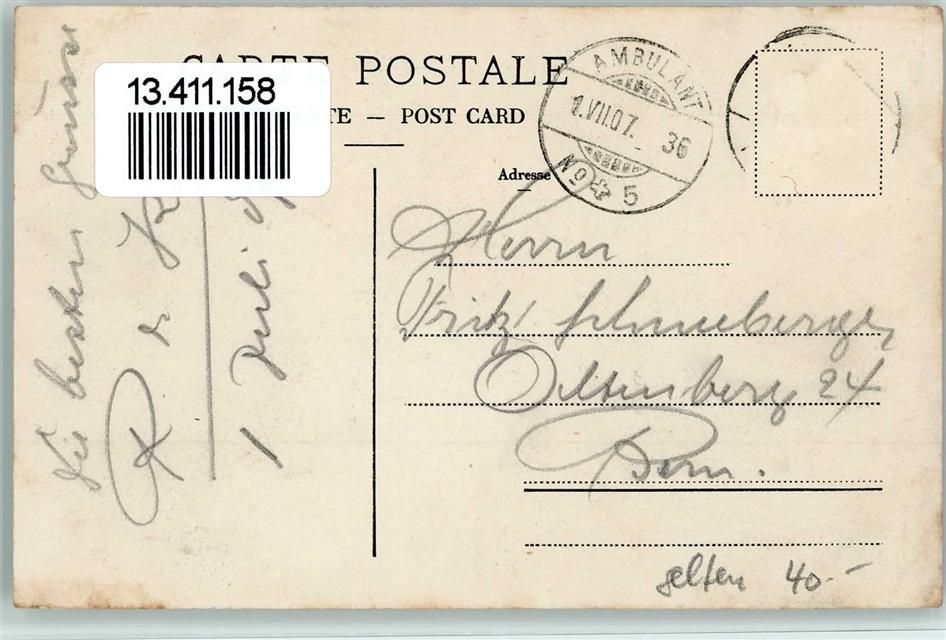 CARTE POSTALE
13.411.158
TE — POST CARD
AMBULANT
1.VII.07.
36
No 5
Adresse
Herrn
Fritz Schneeberger,
Oltenberg 24
Bern.
selten 40.-
Die besten Grüsse
R. &
1 Juli